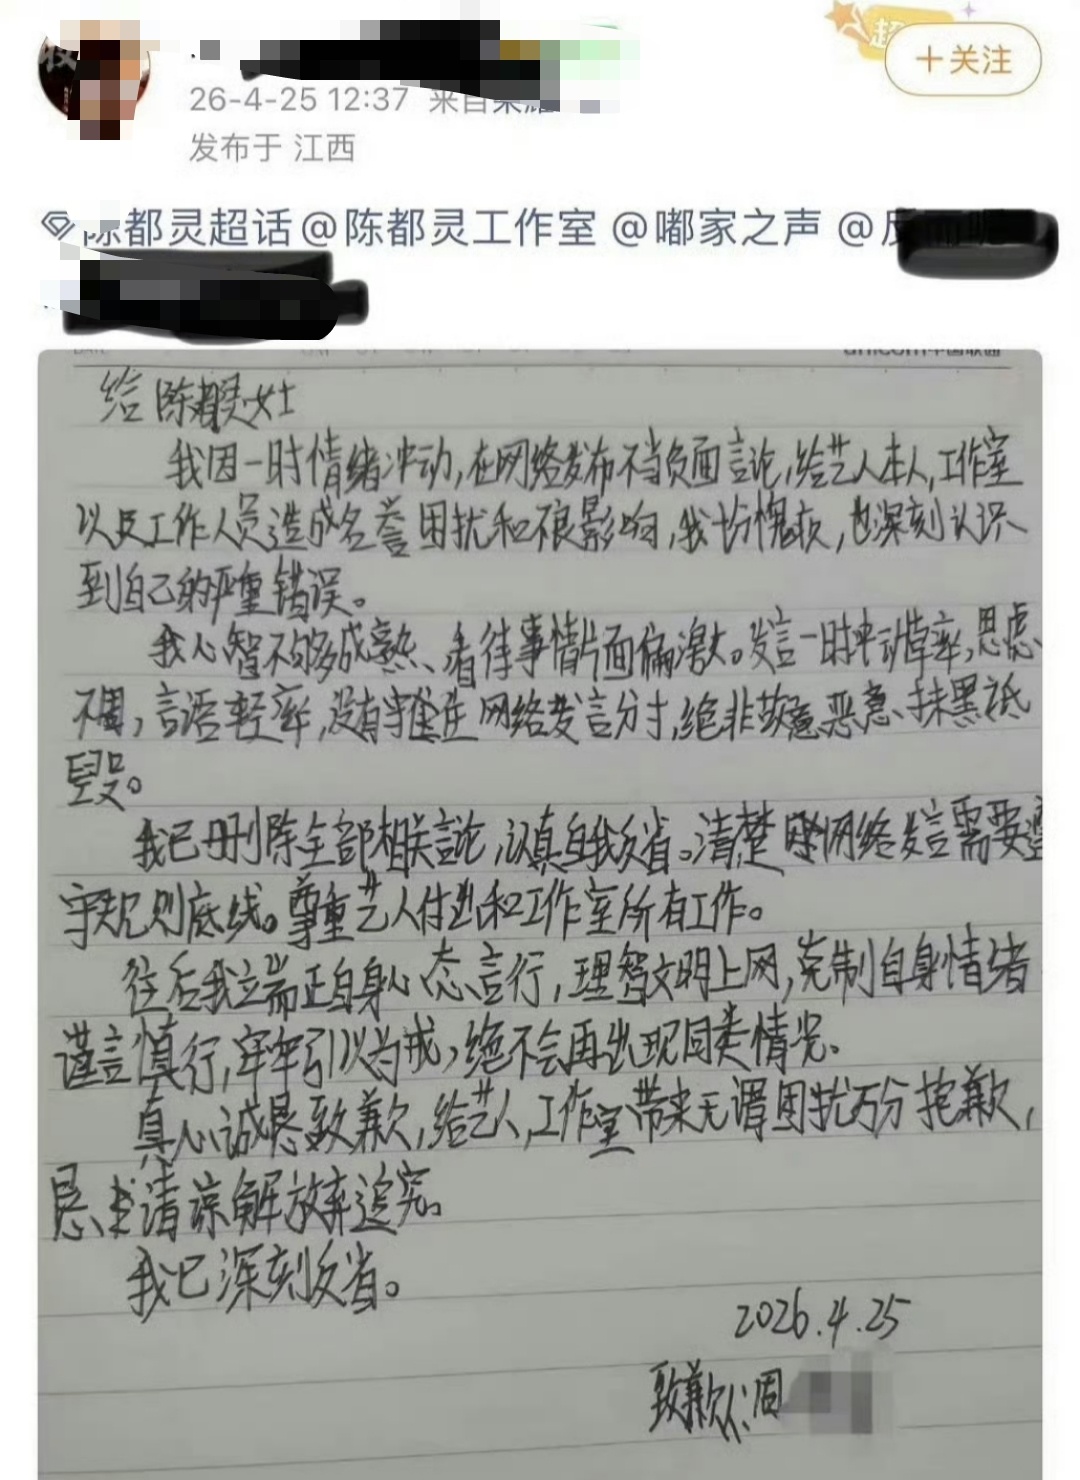 超
26-4-25 12:37 来自荣耀
+关注
发布于 江西
陈都灵超话@陈都灵工作室 @嘟家之声 @反
unicom中国联通
给陈都灵女士
我因一时情绪冲动,在网络发布不当负面言论,给艺人本人,工作室
以及工作人员造成名誉困扰和不良影响,我十分愧疚,也深刻认识
到自己的严重错误。
我心智不够成熟、看待事情片面偏激。发言一时冲动草率,思虑
不周,言语轻率,没有掌握住网络发言分寸,绝非故意恶意、抹黑诋
毁。
我已删除全部相关言论,认真自我反省。清楚网络发言需要遵
守规则底线。尊重艺人付出和工作室所有工作。
往后我端正自身心态言行,理智文明上网,克制自身情绪
谨言慎行,牢牢引以为戒,绝不会再出现同类情况。
真心诚恳致歉,给艺人,工作室带来无谓困扰万分抱歉,
恳求请谅解放弃追究。
我已深刻反省。
2026.4.25
致歉人:周